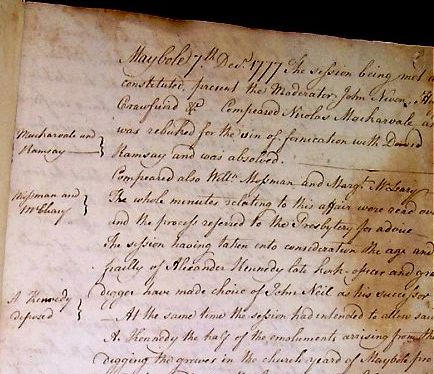 Maybole 7th Decr. 1777 The session being met &
constitute, present the Moderator, John Niven,
Crawfurd &c. Compeared Nicolas Macharvale
Macharvale and
Ramsay
was rebuked for the sin of fornication with David
Ramsay and was absolved.
Compeared also Willm. Mosman and Margt. McLeary
Mosman and
McCleary
The whole minutes relating to this affair were read over
and the process referred to the Presbytery for advice
The session having taken into consideration the age and
frailty of Alexander Kennedy late kirk-officer and gra
digger have made choice of John Neil as his successor
A Kennedy
deposed
At the same time the session had intended to allow said
A. Kennedy the half of the emoluments arrising from the
digging the graves in the church yeard of Maybole pro